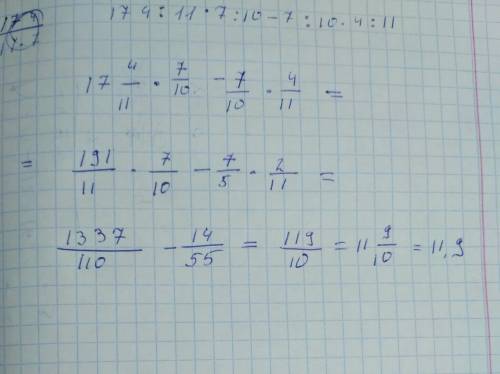 17 4 : 11 · 7 : 10 - 7 : 10 · 4 : 11
17 4/11 · 7/10 - 7/10 · 4/11 =
= 191/11 · 7/10 - 7/5 · 2/11 =
1337/110 - 14/55 = 119/10 = 11 9/10 = 11,9